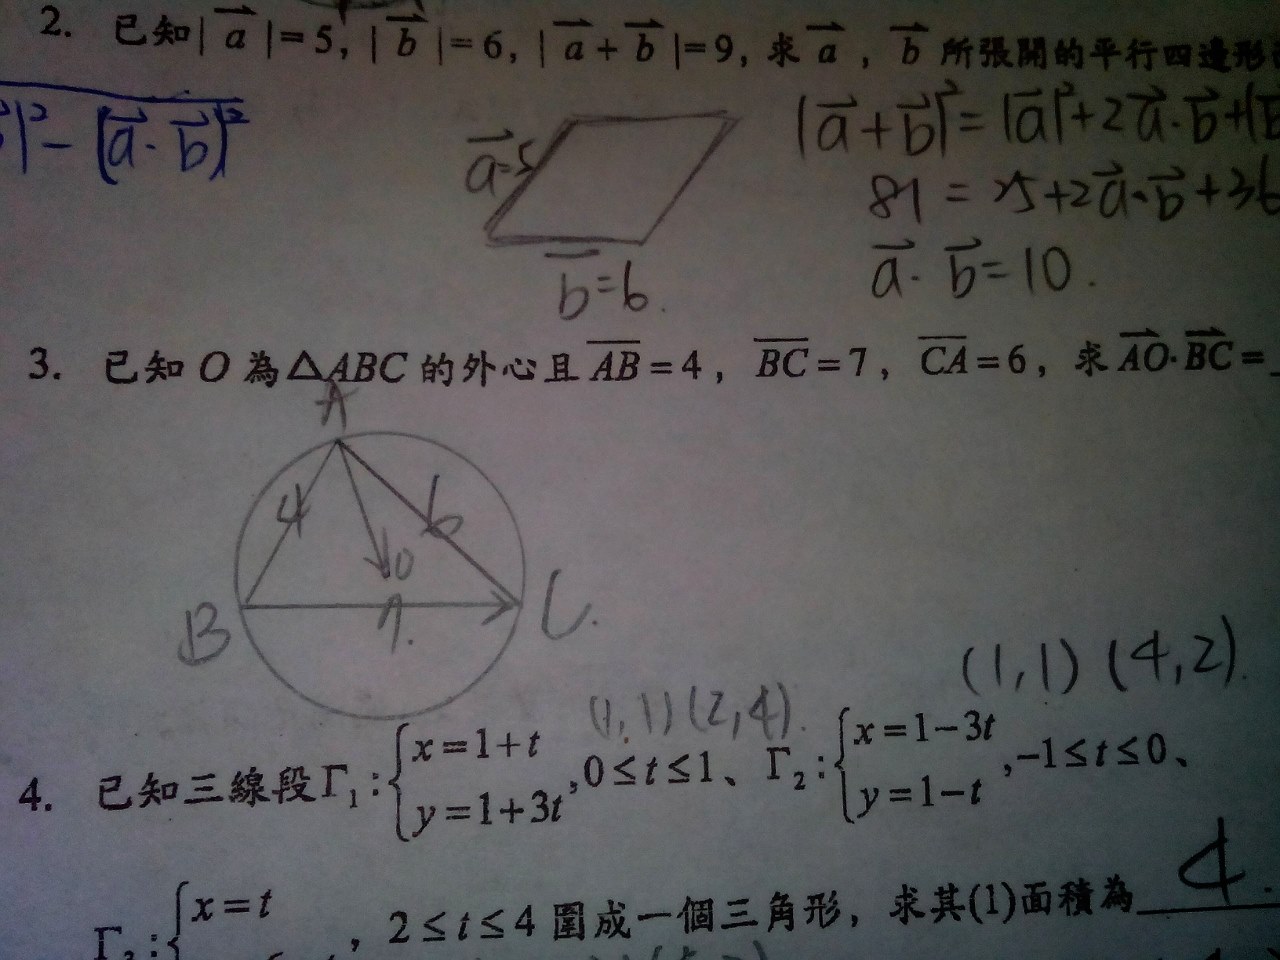 2. 已知|a⃗|=5, |b⃗|=6, |a⃗+b⃗|=9, 求a⃗, b⃗所張開的平行四邊形
|² - (a⃗·b⃗)²
a⃗=5
b=6.
|a⃗+b⃗|²=|a⃗|²+2a⃗·b⃗+|b
81 = 25+2a⃗·b⃗+36
a⃗·b⃗=10.
3. 已知 O 為△ABC 的外心且 A̅B̅=4, B̅C̅=7, C̅A̅=6, 求 AO⃗·BC⃗=
A
4
6
O
B
7.
C.
(1,1) (4,2).
(1,1) (2,4).
4. 已知三線段Γ₁:{x=1+t, y=1+3t, 0≤t≤1、Γ₂:{x=1-3t, y=1-t, -1≤t≤0、
{x=t
Γ₃:{ , 2≤t≤4 圍成一個三角形, 求其(1)面積為 4.